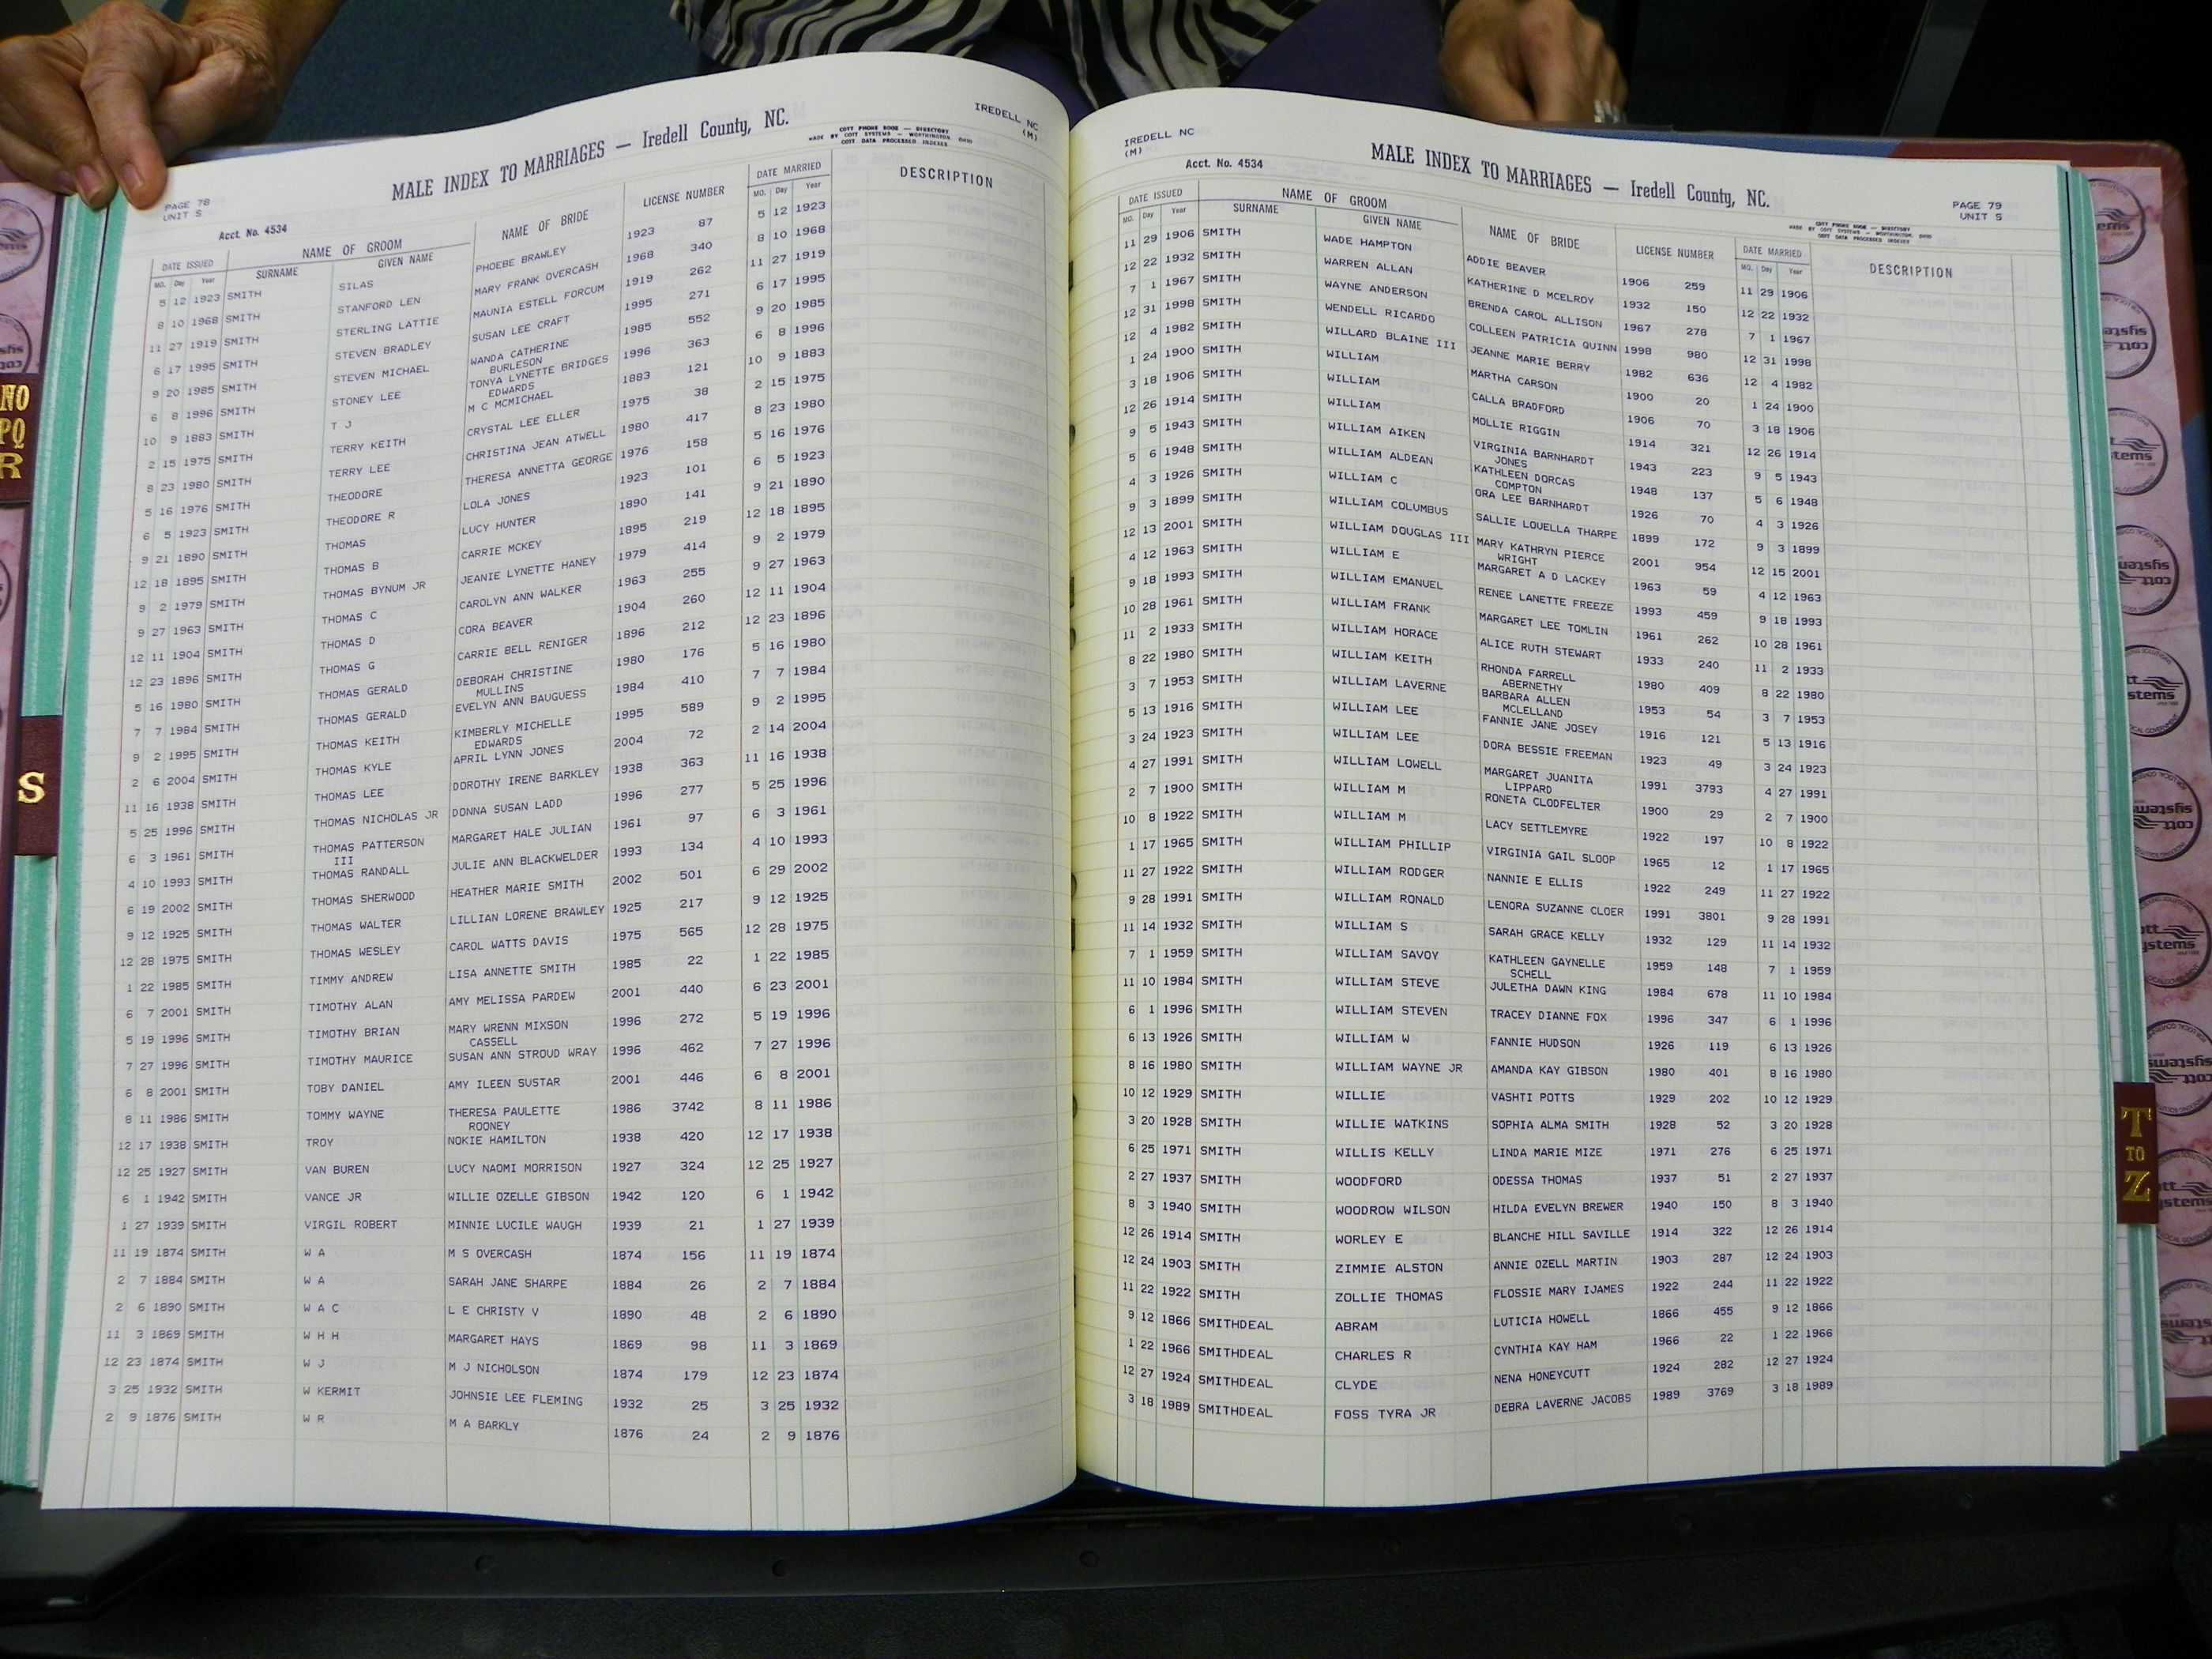 IREDELL NC
(M)
MALE INDEX TO MARRIAGES — Iredell County, NC.
COTT PHONE BOOK — DIRECTORY
MADE BY COTT SYSTEMS — WORTHINGTON, OHIO
COTT DATA PROCESSED INDEXES
PAGE 78
UNIT S
Acct. No. 4534
DATE ISSUED NAME OF GROOM NAME OF BRIDE LICENSE NUMBER DATE MARRIED DESCRIPTION
MO. Day Year SURNAME GIVEN NAME MO. Day Year
5 12 1923 SMITH SILAS PHOEBE BRAWLEY 1923 87 5 12 1923
8 10 1968 SMITH STANFORD LEN MARY FRANK OVERCASH 1968 340 8 10 1968
11 27 1919 SMITH STERLING LATTIE MAUNIA ESTELL FORCUM 1919 262 11 27 1919
6 17 1995 SMITH STEVEN BRADLEY SUSAN LEE CRAFT 1995 271 6 17 1995
9 20 1985 SMITH STEVEN MICHAEL WANDA CATHERINE 1985 552 9 20 1985
BURLESON
6 8 1996 SMITH STONEY LEE TONYA LYNETTE BRIDGES 1996 363 6 8 1996
EDWARDS
10 9 1883 SMITH T J M C MCMICHAEL 1883 121 10 9 1883
2 15 1975 SMITH TERRY KEITH CRYSTAL LEE ELLER 1975 38 2 15 1975
8 23 1980 SMITH TERRY LEE CHRISTINA JEAN ATWELL 1980 417 8 23 1980
5 16 1976 SMITH THEODORE THERESA ANNETTA GEORGE 1976 158 5 16 1976
6 5 1923 SMITH THEODORE R LOLA JONES 1923 101 6 5 1923
9 21 1890 SMITH THOMAS LUCY HUNTER 1890 141 9 21 1890
12 18 1895 SMITH THOMAS B CARRIE MCKEY 1895 219 12 18 1895
9 2 1979 SMITH THOMAS BYNUM JR JEANIE LYNETTE HANEY 1979 414 9 2 1979
9 27 1963 SMITH THOMAS C CAROLYN ANN WALKER 1963 255 9 27 1963
12 11 1904 SMITH THOMAS D CORA BEAVER 1904 260 12 11 1904
12 23 1896 SMITH THOMAS G CARRIE BELL RENIGER 1896 212 12 23 1896
5 16 1980 SMITH THOMAS GERALD DEBORAH CHRISTINE 1980 176 5 16 1980
MULLINS
7 7 1984 SMITH THOMAS GERALD EVELYN ANN BAUGUESS 1984 410 7 7 1984
9 2 1995 SMITH THOMAS KEITH KIMBERLY MICHELLE 1995 589 9 2 1995
EDWARDS
2 6 2004 SMITH THOMAS KYLE APRIL LYNN JONES 2004 72 2 14 2004
11 16 1938 SMITH THOMAS LEE DOROTHY IRENE BARKLEY 1938 363 11 16 1938
5 25 1996 SMITH THOMAS NICHOLAS JR DONNA SUSAN LADD 1996 277 5 25 1996
6 3 1961 SMITH THOMAS PATTERSON MARGARET HALE JULIAN 1961 97 6 3 1961
III
4 10 1993 SMITH THOMAS RANDALL JULIE ANN BLACKWELDER 1993 134 4 10 1993
6 19 2002 SMITH THOMAS SHERWOOD HEATHER MARIE SMITH 2002 501 6 29 2002
9 12 1925 SMITH THOMAS WALTER LILLIAN LORENE BRAWLEY 1925 217 9 12 1925
12 28 1975 SMITH THOMAS WESLEY CAROL WATTS DAVIS 1975 565 12 28 1975
1 22 1985 SMITH TIMMY ANDREW LISA ANNETTE SMITH 1985 22 1 22 1985
6 7 2001 SMITH TIMOTHY ALAN AMY MELISSA PARDEW 2001 440 6 23 2001
5 19 1996 SMITH TIMOTHY BRIAN MARY WRENN MIXSON 1996 272 5 19 1996
CASSELL
7 27 1996 SMITH TIMOTHY MAURICE SUSAN ANN STROUD WRAY 1996 462 7 27 1996
6 8 2001 SMITH TOBY DANIEL AMY ILEEN SUSTAR 2001 446 6 8 2001
8 11 1986 SMITH TOMMY WAYNE THERESA PAULETTE 1986 3742 8 11 1986
ROONEY
12 17 1938 SMITH TROY NOKIE HAMILTON 1938 420 12 17 1938
12 25 1927 SMITH VAN BUREN LUCY NAOMI MORRISON 1927 324 12 25 1927
6 1 1942 SMITH VANCE JR WILLIE OZELLE GIBSON 1942 120 6 1 1942
1 27 1939 SMITH VIRGIL ROBERT MINNIE LUCILE WAUGH 1939 21 1 27 1939
11 19 1874 SMITH W A M S OVERCASH 1874 156 11 19 1874
2 7 1884 SMITH W A SARAH JANE SHARPE 1884 26 2 7 1884
2 6 1890 SMITH W A C L E CHRISTY V 1890 48 2 6 1890
11 3 1869 SMITH W H H MARGARET HAYS 1869 98 11 3 1869
12 23 1874 SMITH W J M J NICHOLSON 1874 179 12 23 1874
3 25 1932 SMITH W KERMIT JOHNSIE LEE FLEMING 1932 25 3 25 1932
2 9 1876 SMITH W R M A BARKLY 1876 24 2 9 1876
IREDELL NC
(M)
Acct. No. 4534
MALE INDEX TO MARRIAGES — Iredell County, NC.
PAGE 79
UNIT S
COTT PHONE BOOK — DIRECTORY
MADE BY COTT SYSTEMS — WORTHINGTON, OHIO
COTT DATA PROCESSED INDEXES
DATE ISSUED NAME OF GROOM NAME OF BRIDE LICENSE NUMBER DATE MARRIED DESCRIPTION
MO. Day Year SURNAME GIVEN NAME MO. Day Year
11 29 1906 SMITH WADE HAMPTON ADDIE BEAVER 1906 259 11 29 1906
12 22 1932 SMITH WARREN ALLAN KATHERINE D MCELROY 1932 150 12 22 1932
7 1 1967 SMITH WAYNE ANDERSON BRENDA CAROL ALLISON 1967 278 7 1 1967
12 31 1998 SMITH WENDELL RICARDO COLLEEN PATRICIA QUINN 1998 980 12 31 1998
12 4 1982 SMITH WILLARD BLAINE III JEANNE MARIE BERRY 1982 636 12 4 1982
1 24 1900 SMITH WILLIAM MARTHA CARSON 1900 20 1 24 1900
3 18 1906 SMITH WILLIAM CALLA BRADFORD 1906 70 3 18 1906
12 26 1914 SMITH WILLIAM MOLLIE RIGGIN 1914 321 12 26 1914
9 5 1943 SMITH WILLIAM AIKEN VIRGINIA BARNHARDT 1943 223 9 5 1943
JONES
5 6 1948 SMITH WILLIAM ALDEAN KATHLEEN DORCAS 1948 137 5 6 1948
COMPTON
4 3 1926 SMITH WILLIAM C ORA LEE BARNHARDT 1926 70 4 3 1926
9 3 1899 SMITH WILLIAM COLUMBUS SALLIE LOUELLA THARPE 1899 172 9 3 1899
12 13 2001 SMITH WILLIAM DOUGLAS III MARY KATHRYN PIERCE 2001 954 12 15 2001
WRIGHT
4 12 1963 SMITH WILLIAM E MARGARET A D LACKEY 1963 59 4 12 1963
9 18 1993 SMITH WILLIAM EMANUEL RENEE LANETTE FREEZE 1993 459 9 18 1993
10 28 1961 SMITH WILLIAM FRANK MARGARET LEE TOMLIN 1961 262 10 28 1961
11 2 1933 SMITH WILLIAM HORACE ALICE RUTH STEWART 1933 240 11 2 1933
8 22 1980 SMITH WILLIAM KEITH RHONDA FARRELL 1980 409 8 22 1980
ABERNETHY
3 7 1953 SMITH WILLIAM LAVERNE BARBARA ALLEN 1953 54 3 7 1953
MCLELLAND
5 13 1916 SMITH WILLIAM LEE FANNIE JANE JOSEY 1916 121 5 13 1916
3 24 1923 SMITH WILLIAM LEE DORA BESSIE FREEMAN 1923 49 3 24 1923
4 27 1991 SMITH WILLIAM LOWELL MARGARET JUANITA 1991 3793 4 27 1991
LIPPARD
2 7 1900 SMITH WILLIAM M RONETA CLODFELTER 1900 29 2 7 1900
10 8 1922 SMITH WILLIAM M LACY SETTLEMYRE 1922 197 10 8 1922
1 17 1965 SMITH WILLIAM PHILLIP VIRGINIA GAIL SLOOP 1965 12 1 17 1965
11 27 1922 SMITH WILLIAM RODGER NANNIE E ELLIS 1922 249 11 27 1922
9 28 1991 SMITH WILLIAM RONALD LENORA SUZANNE CLOER 1991 3801 9 28 1991
11 14 1932 SMITH WILLIAM S SARAH GRACE KELLY 1932 129 11 14 1932
7 1 1959 SMITH WILLIAM SAVOY KATHLEEN GAYNELLE 1959 148 7 1 1959
SCHELL
11 10 1984 SMITH WILLIAM STEVE JULETHA DAWN KING 1984 678 11 10 1984
6 1 1996 SMITH WILLIAM STEVEN TRACEY DIANNE FOX 1996 347 6 1 1996
6 13 1926 SMITH WILLIAM W FANNIE HUDSON 1926 119 6 13 1926
8 16 1980 SMITH WILLIAM WAYNE JR AMANDA KAY GIBSON 1980 401 8 16 1980
10 12 1929 SMITH WILLIE VASHTI POTTS 1929 202 10 12 1929
3 20 1928 SMITH WILLIE WATKINS SOPHIA ALMA SMITH 1928 52 3 20 1928
6 25 1971 SMITH WILLIS KELLY LINDA MARIE MIZE 1971 276 6 25 1971
2 27 1937 SMITH WOODFORD ODESSA THOMAS 1937 51 2 27 1937
8 3 1940 SMITH WOODROW WILSON HILDA EVELYN BREWER 1940 150 8 3 1940
12 26 1914 SMITH WORLEY E BLANCHE HILL SAVILLE 1914 322 12 26 1914
12 24 1903 SMITH ZIMMIE ALSTON ANNIE OZELL MARTIN 1903 287 12 24 1903
11 22 1922 SMITH ZOLLIE THOMAS FLOSSIE MARY IJAMES 1922 244 11 22 1922
9 12 1866 SMITHDEAL ABRAM LUTICIA HOWELL 1866 455 9 12 1866
1 22 1966 SMITHDEAL CHARLES R CYNTHIA KAY HAM 1966 22 1 22 1966
12 27 1924 SMITHDEAL CLYDE NENA HONEYCUTT 1924 282 12 27 1924
3 18 1989 SMITHDEAL FOSS TYRA JR DEBRA LAVERNE JACOBS 1989 3769 3 18 1989
NO
PQ
R
S
T
TO
Z